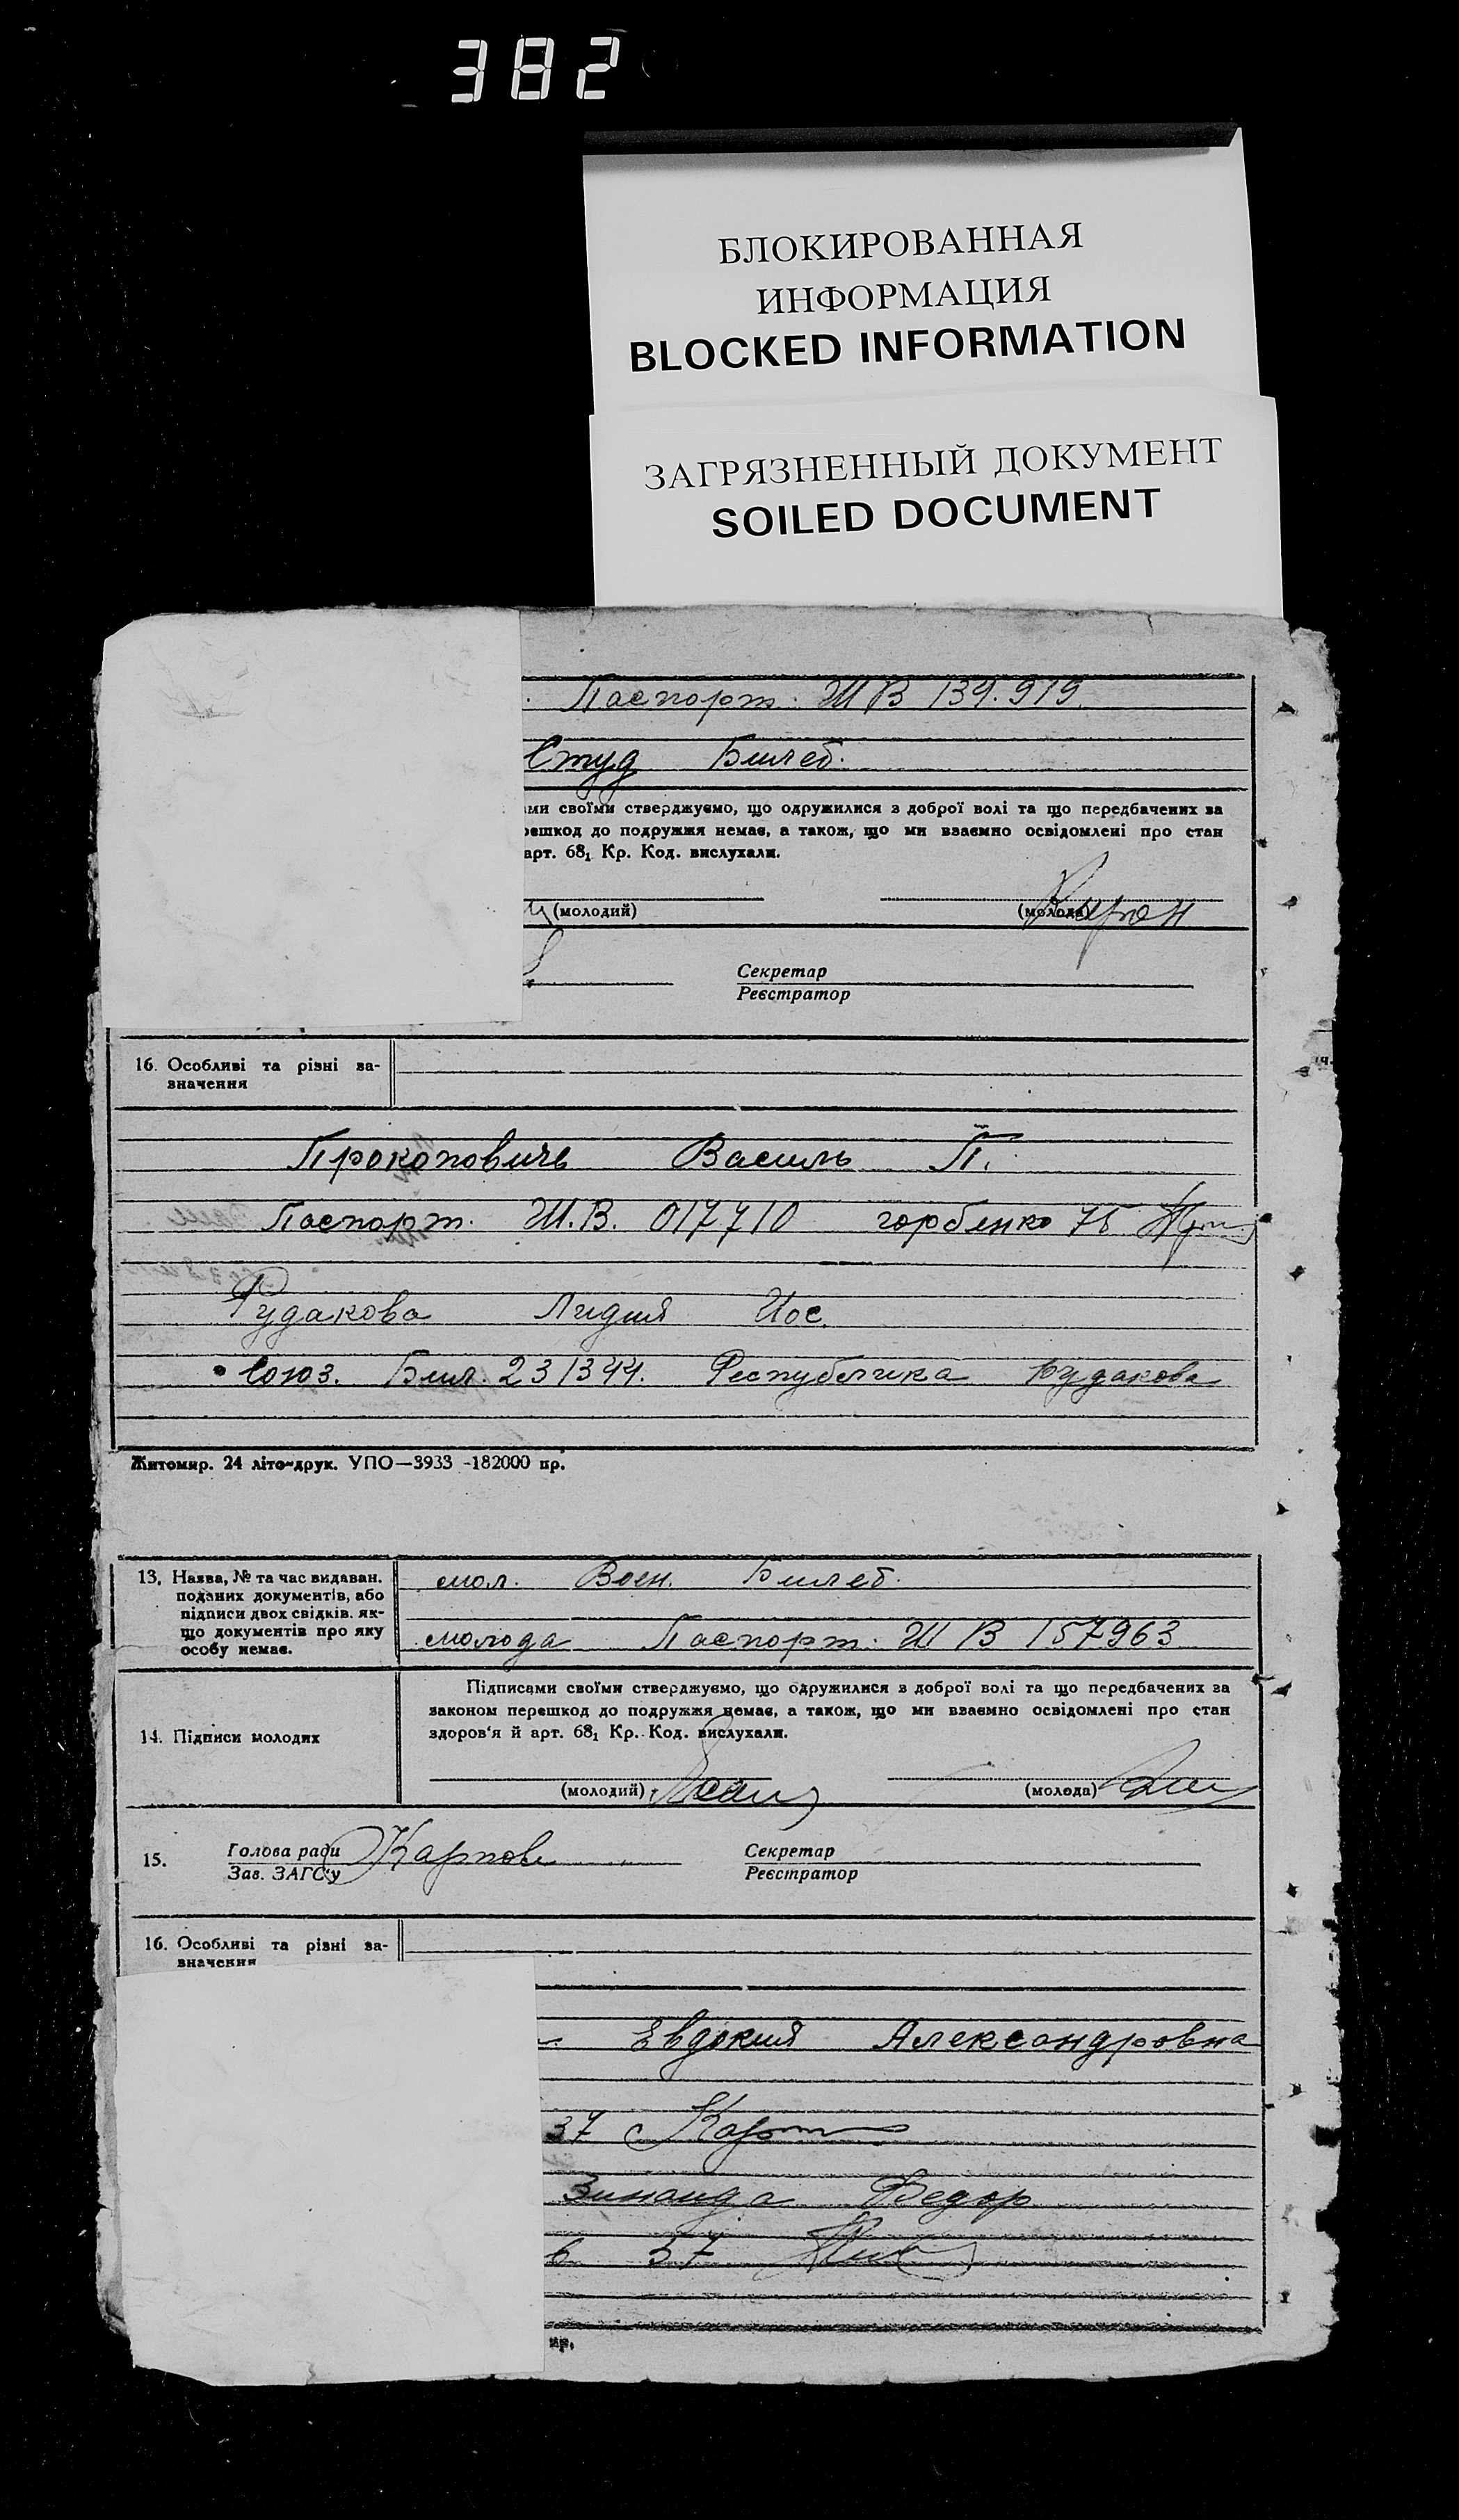 382
БЛОКИРОВАННАЯ
ИНФОРМАЦИЯ
BLOCKED INFORMATION
ЗАГРЯЗНЕННЫЙ ДОКУМЕНТ
SOILED DOCUMENT
Паспорт. ШВ 139.919.
Студ Билет.
ми своїми стверджуємо, що одружилися з доброї волі та що передбачених за
решкод до подружжя немає, а також, що ми взаємно освідомлені про стан
арт. 68₁ Кр. Код. вислухали.
(молодий) (молода)
Секретар
Реєстратор
16. Особливі та різні за-
значення
Прокоповичь Василь П.
Паспорт. Ш.В. 017710 горбенко 75
Рудакова Лидия Иос.
Союз. Бил. 231344. Республика Рудакова
Житомир. 24 літо-друк. УПО—3933 -182000 пр.
13. Назва, № та час видаван.
поданих документів, або
підписи двох свідків. як-
що документів про яку
особу немає.
мол. Воен. Билет.
молода Паспорт. ШВ 157963
14. Підписи молодих
Підписами своїми стверджуємо, що одружилися з доброї волі та що передбачених за
законом перешкод до подружжя немає, а також, що ми взаємно освідомлені про стан
здоров'я й арт. 68₁ Кр. Код. вислухали.
(молодий) (молода)
15. Голова ради Карпов Секретар
Зав. ЗАГС'у Реєстратор
16. Особливі та різні за-
значення
Евдокия Александровна
37
Зинаида Федор
6 37
пр.